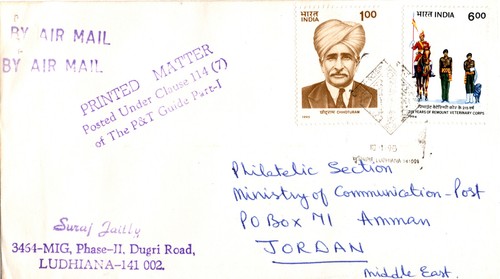 BY AIR MAIL
BY AIR MAIL
PRINTED MATTER
Posted Under Clause 114 (7)
of The P&T Guide Part-I
भारत
INDIA
1.00
भारत INDIA
6.00
YEARS OF REMOUNT VETERINARY CORPS
LUDHIANA
Philatelic Section
Ministry of Communication-Post
PO Box 71 Amman
JORDAN
Middle East.
Suraj Jaitly
3454-MIG, Phase-II, Dugri Road,
LUDHIANA-141 002.